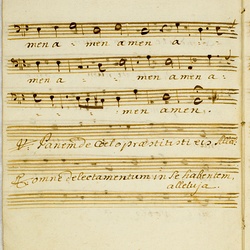 men a men a men a
men a men a men a
men a men.
V. Panem de Cœlo præstitisti eis, Allel:
R. omne delectamentum in se habentem,
alleluja